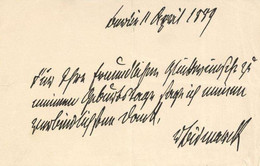 Berlin 11 April 1889
Für Ihre freundlichen Glückwünsche zu
meinem Geburtstage sage ich meinen
verbindlichsten Dank.
v Bismarck